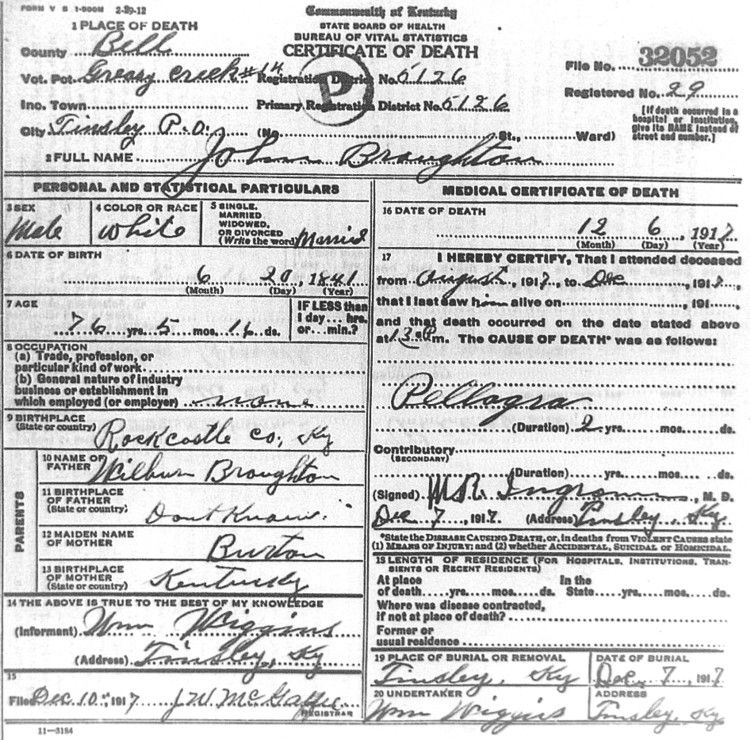 FORM V S 1-500M 2-29-12
Commonwealth of Kentucky
STATE BOARD OF HEALTH
BUREAU OF VITAL STATISTICS
CERTIFICATE OF DEATH
1 PLACE OF DEATH
County Bell
Vot. Pct. Greasy Creek #14 Registration District No. 5126
Inc. Town Primary Registration District No. 5126
City Tinsley P.O. (No. St., Ward)
P
File No. 32052
Registered No. 29
[If death occurred in a
hospital or institution,
give its NAME instead of
street and number.]
2 FULL NAME John Broughton
PERSONAL AND STATISTICAL PARTICULARS
3 SEX
Male
4 COLOR OR RACE
White
5 SINGLE,
MARRIED
WIDOWED,
OR DIVORCED
(Write the word) Married
6 DATE OF BIRTH
6 20, 1841
(Month) (Day) (Year)
7 AGE
76 yrs. 5 mos. 16 ds.
IF LESS than
1 day... hrs.
or... min.?
8 OCCUPATION
(a) Trade, profession, or
particular kind of work
(b) General nature of industry
business or establishment in
which employed (or employer) none
9 BIRTHPLACE
(State or country) Rockcastle co., Ky
PARENTS
10 NAME OF
FATHER Wilburn Broughton
11 BIRTHPLACE
OF FATHER
(State or country) Dont Know
12 MAIDEN NAME
OF MOTHER Burton
13 BIRTHPLACE
OF MOTHER
(State or country) Kentucky
14 THE ABOVE IS TRUE TO THE BEST OF MY KNOWLEDGE
(Informant) Wm Wiggins
(Address) Tinsley, Ky
15
Filed Dec. 10, 1917 J.W. McGaffee
REGISTRAR
11-3184
MEDICAL CERTIFICATE OF DEATH
16 DATE OF DEATH
12 6, 1917
(Month) (Day) (Year)
17 I HEREBY CERTIFY, That I attended deceased
from August, 1917, to Dec, 191
that I last saw him alive on , 191
and that death occurred on the date stated above
at m. The CAUSE OF DEATH* was as follows:
Pellagra
(Duration) 2 yrs. mos. ds.
Contributory
(SECONDARY)
(Duration) yrs. mos. ds.
(Signed) Ingram, M. D.
Dec 7, 1917 (Address) Tinsley, Ky.
*State the DISEASE CAUSING DEATH, or, in deaths from VIOLENT CAUSES state
(1) MEANS OF INJURY; and (2) whether ACCIDENTAL, SUICIDAL or HOMICIDAL.
18 LENGTH OF RESIDENCE (FOR HOSPITALS, INSTITUTIONS, TRAN-
SIENTS OR RECENT RESIDENTS)
At place In the
of death yrs. mos. ds. State yrs. mos. ds.
Where was disease contracted,
if not at place of death?
Former or
usual residence
19 PLACE OF BURIAL OR REMOVAL
Tinsley, Ky
DATE OF BURIAL
Dec. 7, 1917
20 UNDERTAKER
Wm Wiggins
ADDRESS
Tinsley, Ky.